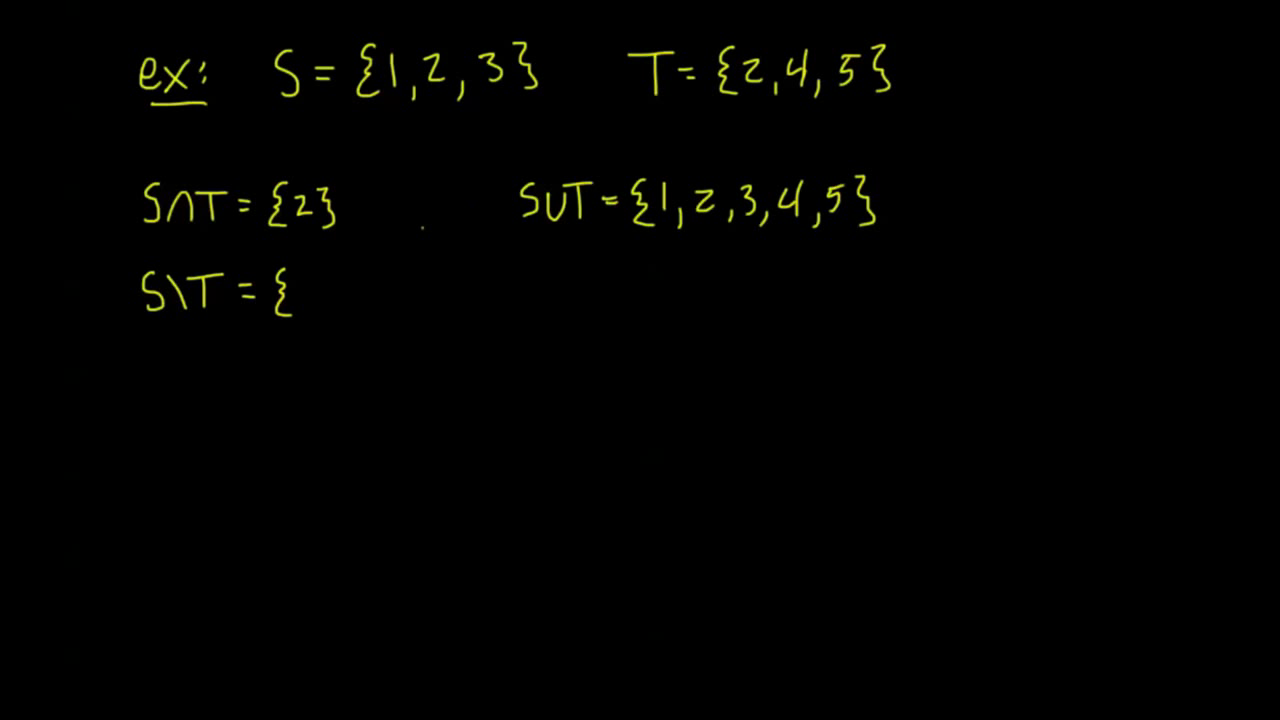 ex: S = {1, 2, 3} T = {2, 4, 5}
S∩T = {2} S∪T = {1, 2, 3, 4, 5}
S\T = {